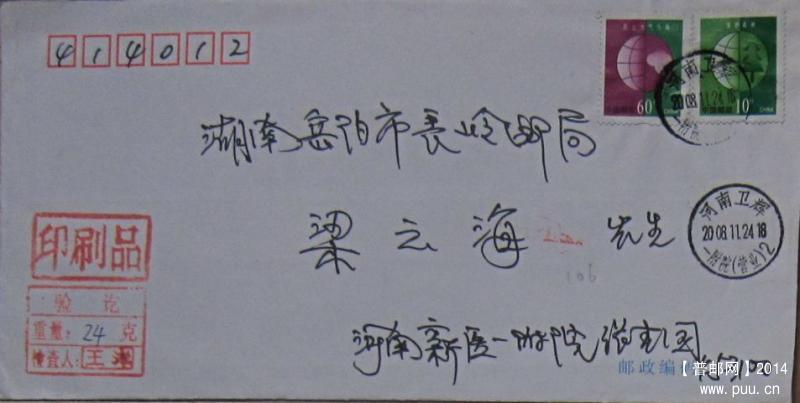 414012
60分
中国邮政
CHINA
10分
河南卫辉
2008.11.24.18
湖南岳阳市长岭邮局
河南卫辉
2008.11.24.18
一附院(营业)2
梁云海 先生
印刷品
106
验讫
重量:24克
检查人:王
河南新医一附院张宝国
邮政编
【普邮网】2014
www.puu.cn